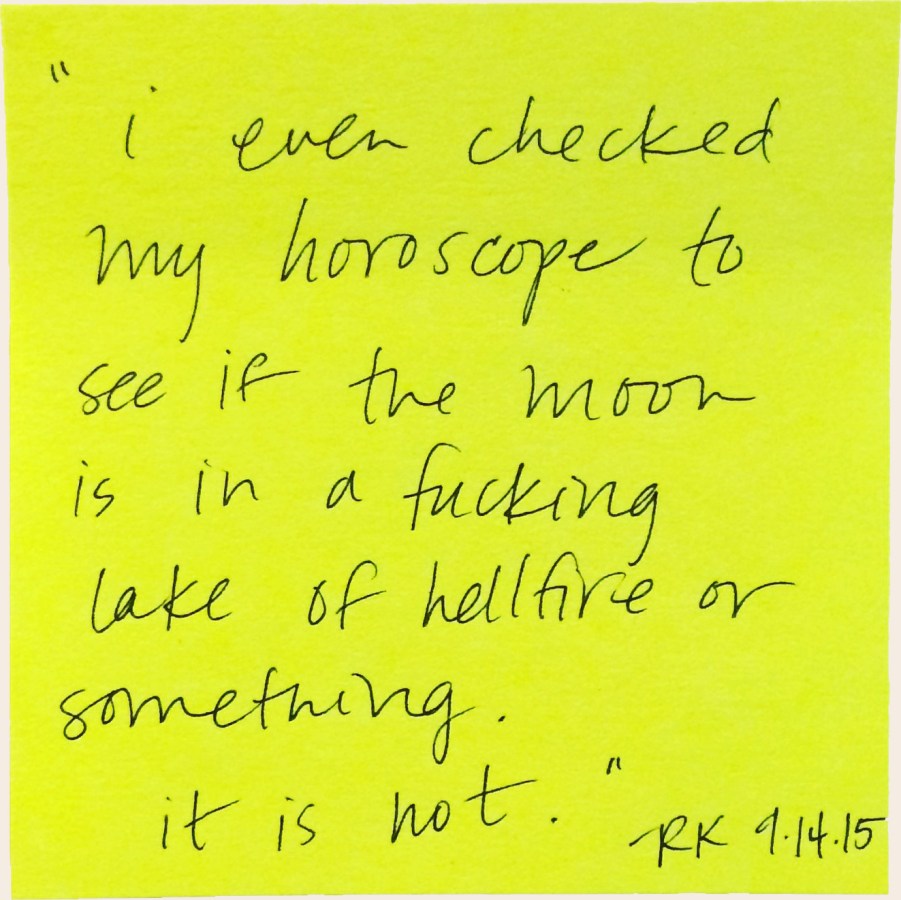 "
i even checked
my horoscope to
see if the moon
is in a fucking
lake of hellfire or
something.
it is not."
-RK 9.14.15